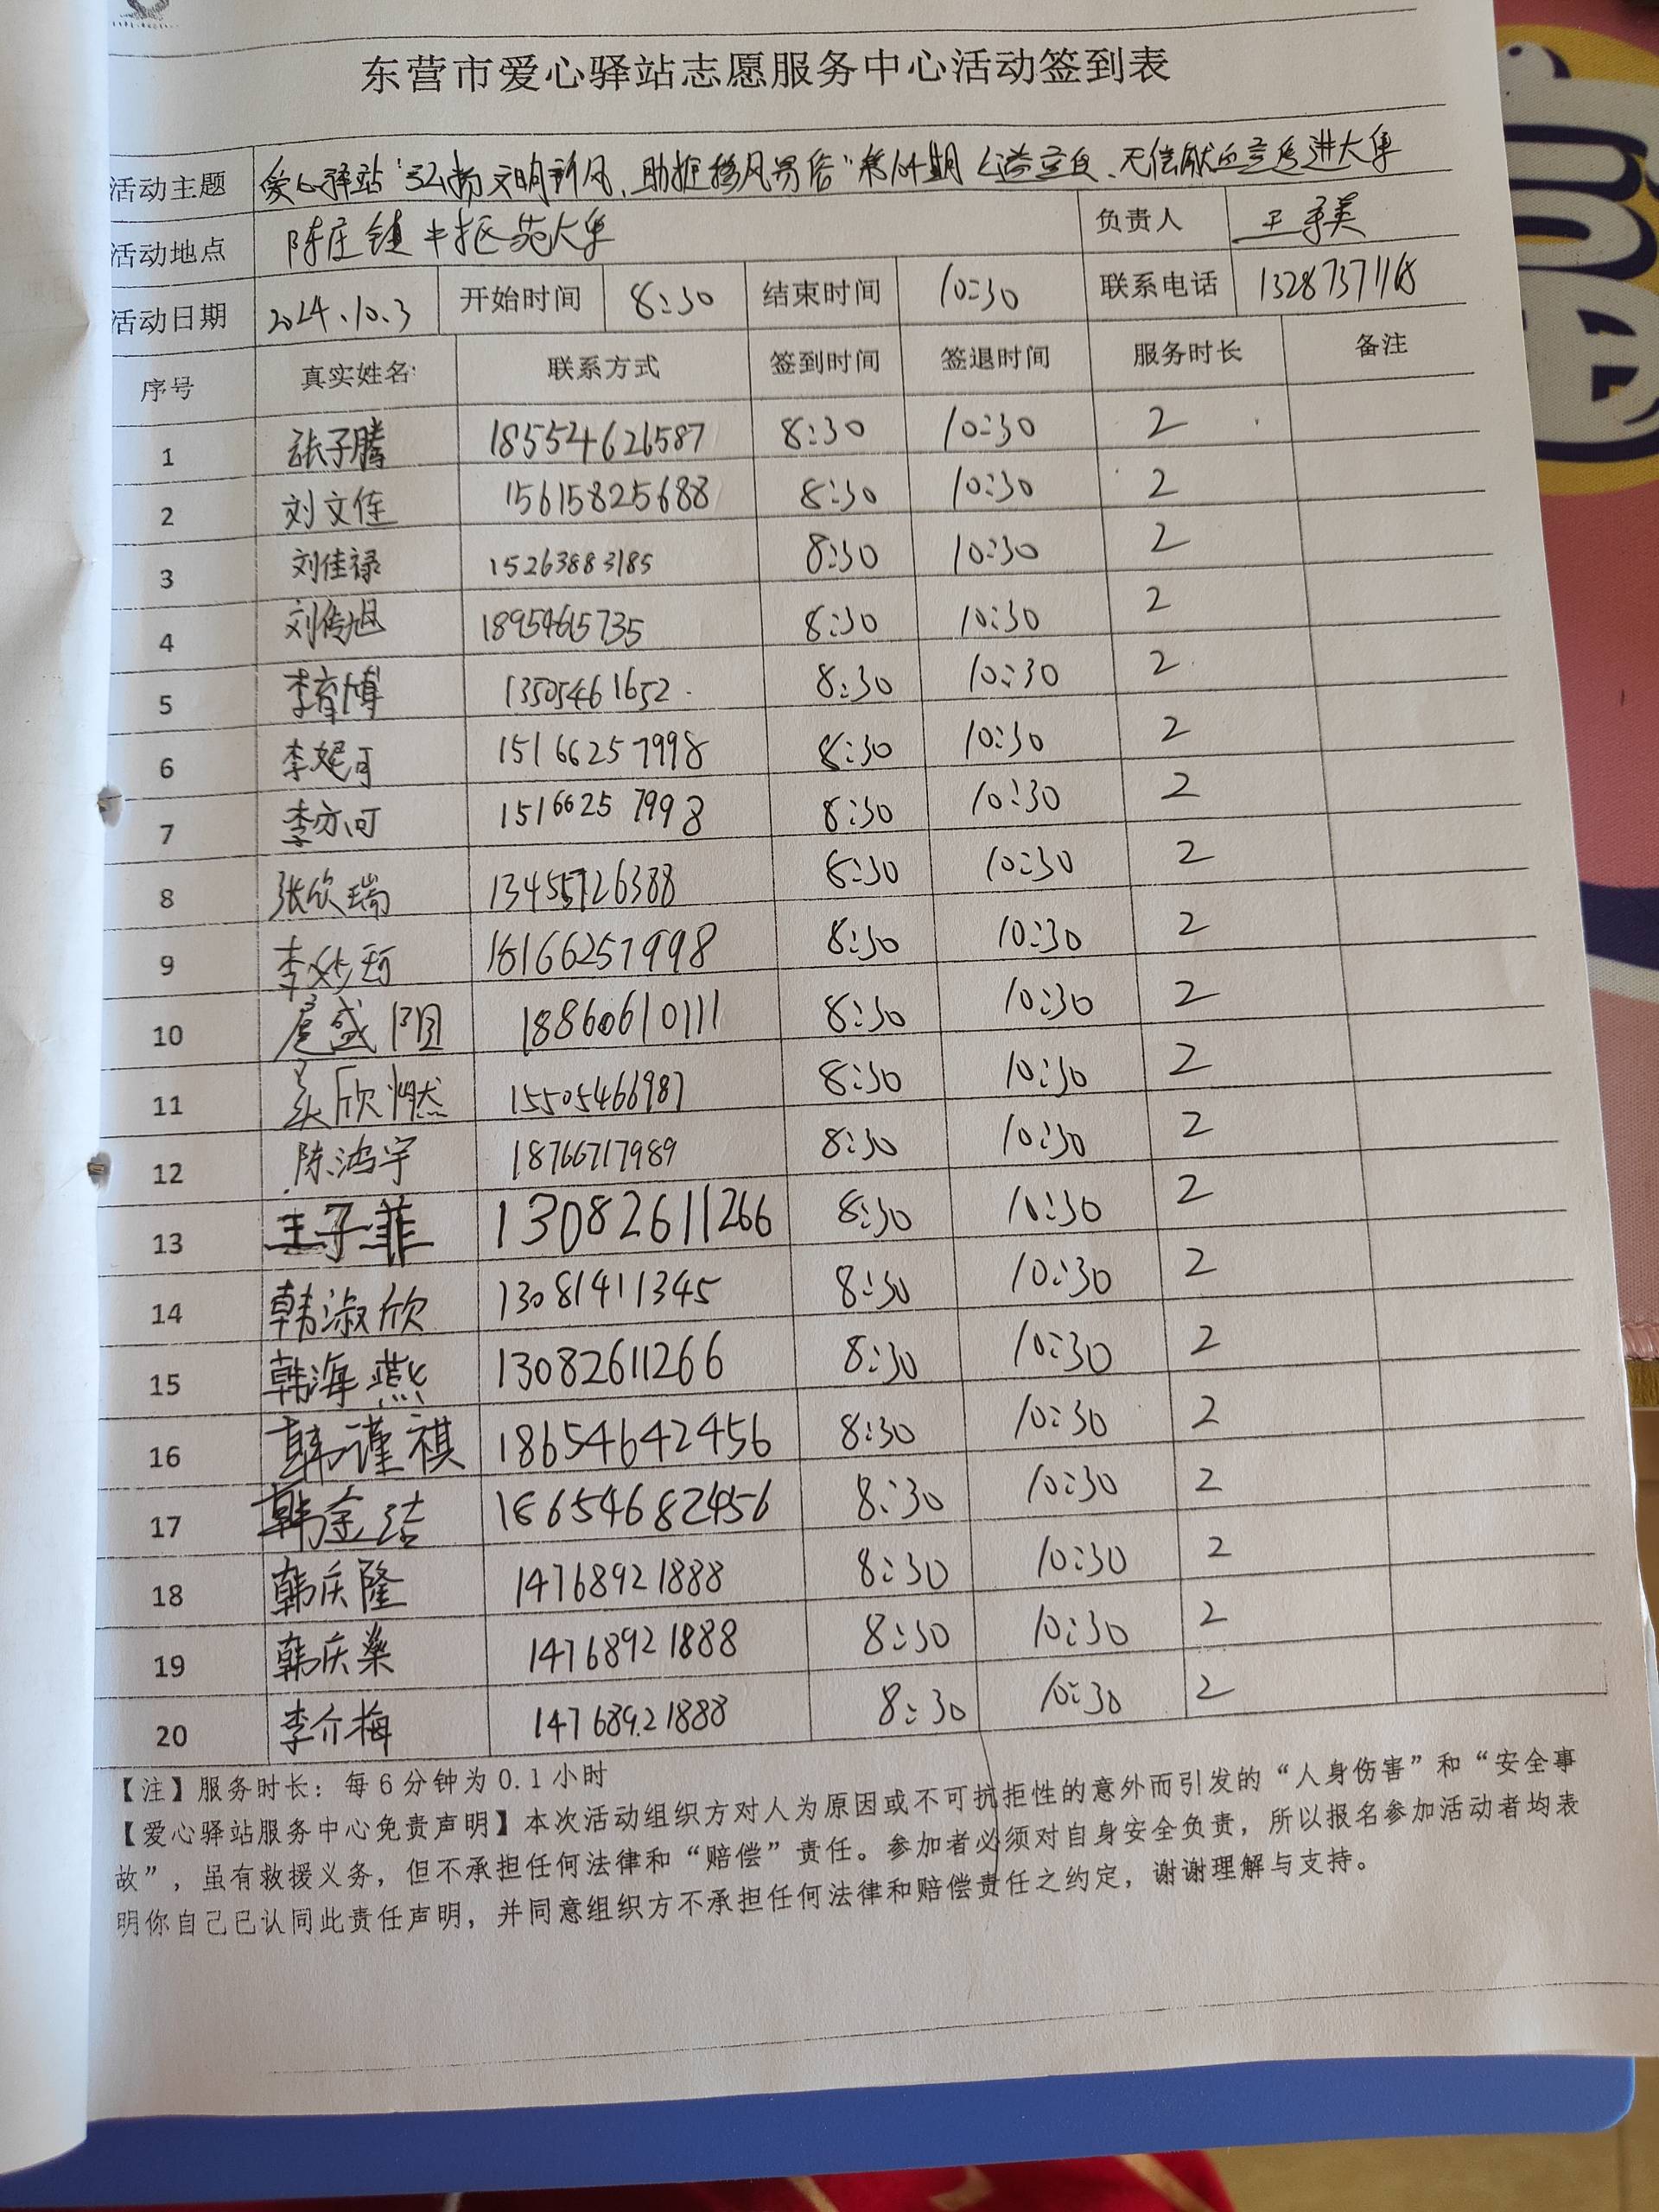 东营市爱心驿站志愿服务中心活动签到表
活动主题 爱心驿站"弘扬文明新风、助推移风易俗"第104期 公益宣传、无偿献血宣传进大集
活动地点 陈庄镇 大集 负责人 王
活动日期 2024.10.3 开始时间 8:30 结束时间 10:30 联系电话 13287371168
序号 真实姓名 联系方式 签到时间 签退时间 服务时长 备注
1 张子腾 185524626587 8:30 10:30 2
2 刘文佳 15615825688 8:30 10:30 2
3 刘佳禄 15263883185 8:30 10:30 2
4 刘传旭 18954615735 8:30 10:30 2
5 李育博 13505461652 8:30 10:30 2
6 李妮可 15166257998 8:30 10:30 2
7 李亦可 15166257998 8:30 10:30 2
8 张欣瑞 13455726388 8:30 10:30 2
9 李妙可 15166257998 8:30 10:30 2
10 扈盛阳 18860610111 8:30 10:30 2
11 欣燃 15505466987 8:30 10:30 2
12 陈鸿宇 18766717989 8:30 10:30 2
13 王子菲 13082611266 8:30 10:30 2
14 韩淑欣 13081411345 8:30 10:30 2
15 韩海燕 13082611266 8:30 10:30 2
16 韩谨祺 18654642456 8:30 10:30 2
17 韩金洁 18654682456 8:30 10:30 2
18 韩庆隆 14768921888 8:30 10:30 2
19 韩庆燊 14768921888 8:30 10:30 2
20 李介梅 14768921888 8:30 10:30 2
【注】服务时长：每6分钟为0.1小时
【爱心驿站服务中心免责声明】本次活动组织方对人为原因或不可抗拒性的意外而引发的“人身伤害”和“安全事
故”，虽有救援义务，但不承担任何法律和“赔偿”责任。参加者必须对自身安全负责，所以报名参加活动者均表
明你自己已认同此责任声明，并同意组织方不承担任何法律和赔偿责任之约定，谢谢理解与支持。